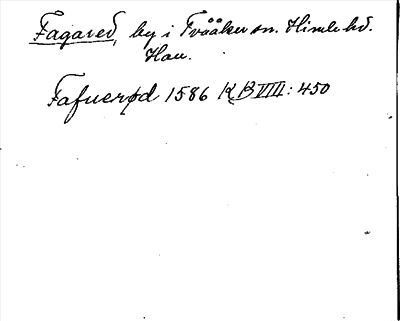 Fagared, by i Tvååker sn. Himle hd.
Hall.
Fafuerød 1586 KB VIII: 450